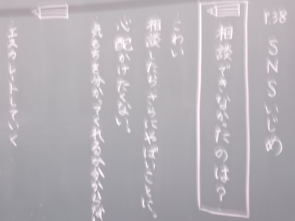 P.38 SNSいじめ
相談できなかったのは？
こわい
相談したらさらにやばいことに、
心配かけたくない。
気もちを分かってくれるか分からない
エスカレートしていく